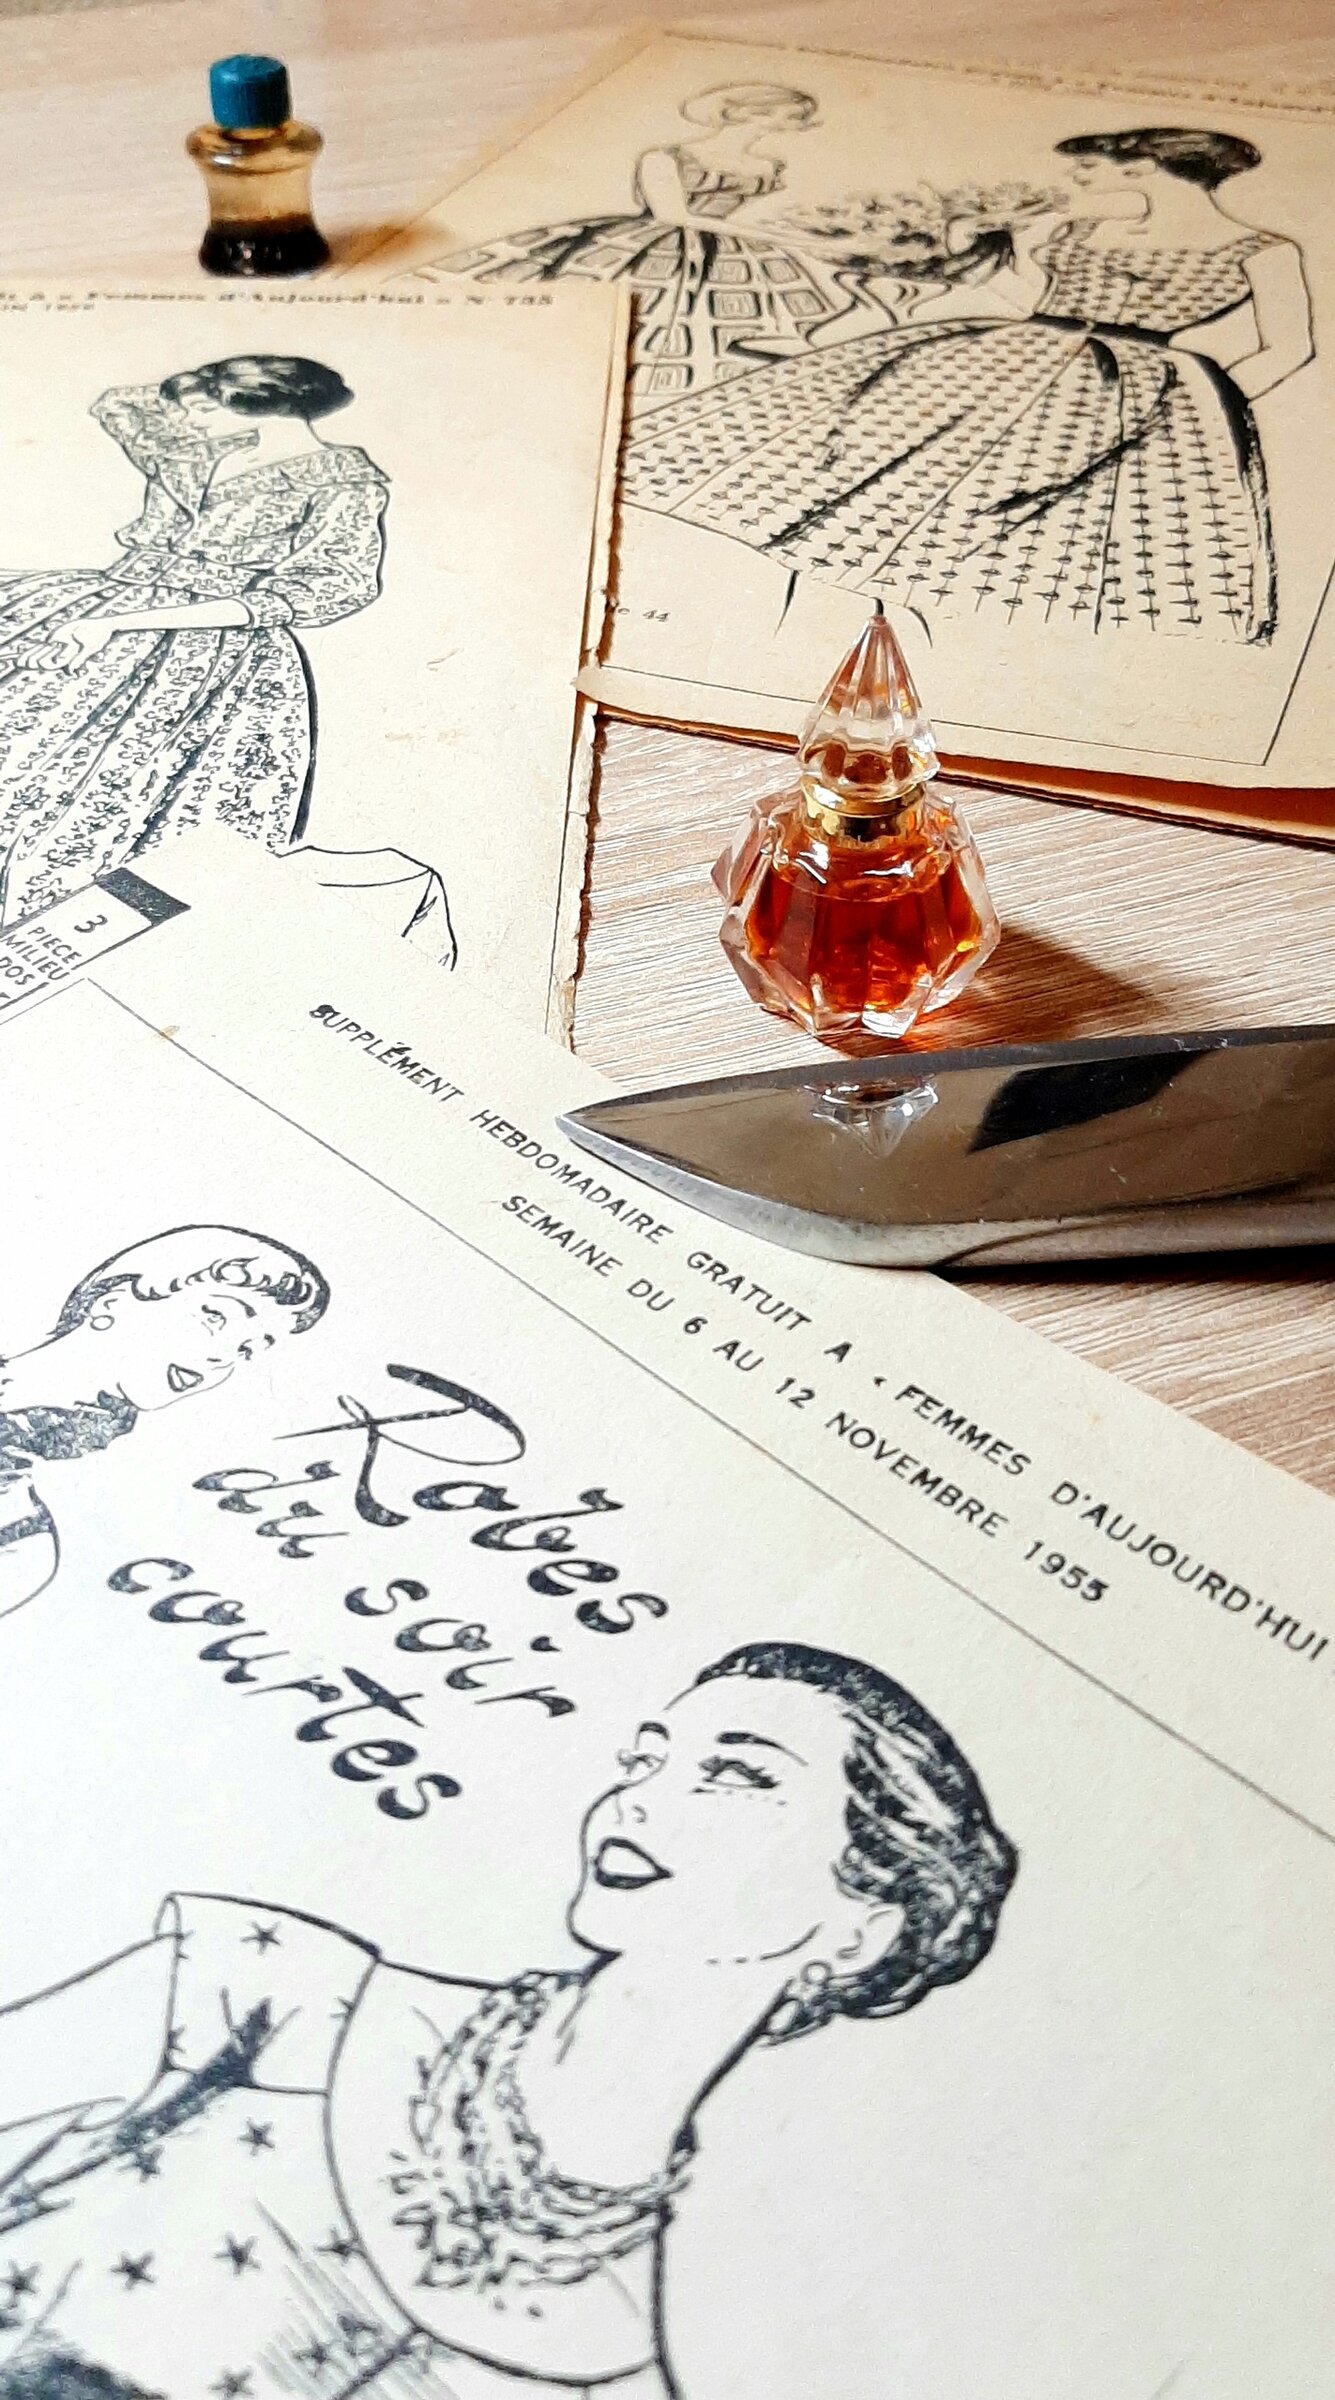 « Femmes d'Aujourd'hui » N° 735
44
3
PIECE
MILIEU
DOS
SUPPLÉMENT HEBDOMADAIRE GRATUIT A « FEMMES D'AUJOURD'HUI
SEMAINE DU 6 AU 12 NOVEMBRE 1955
Robes
du soir
courtes